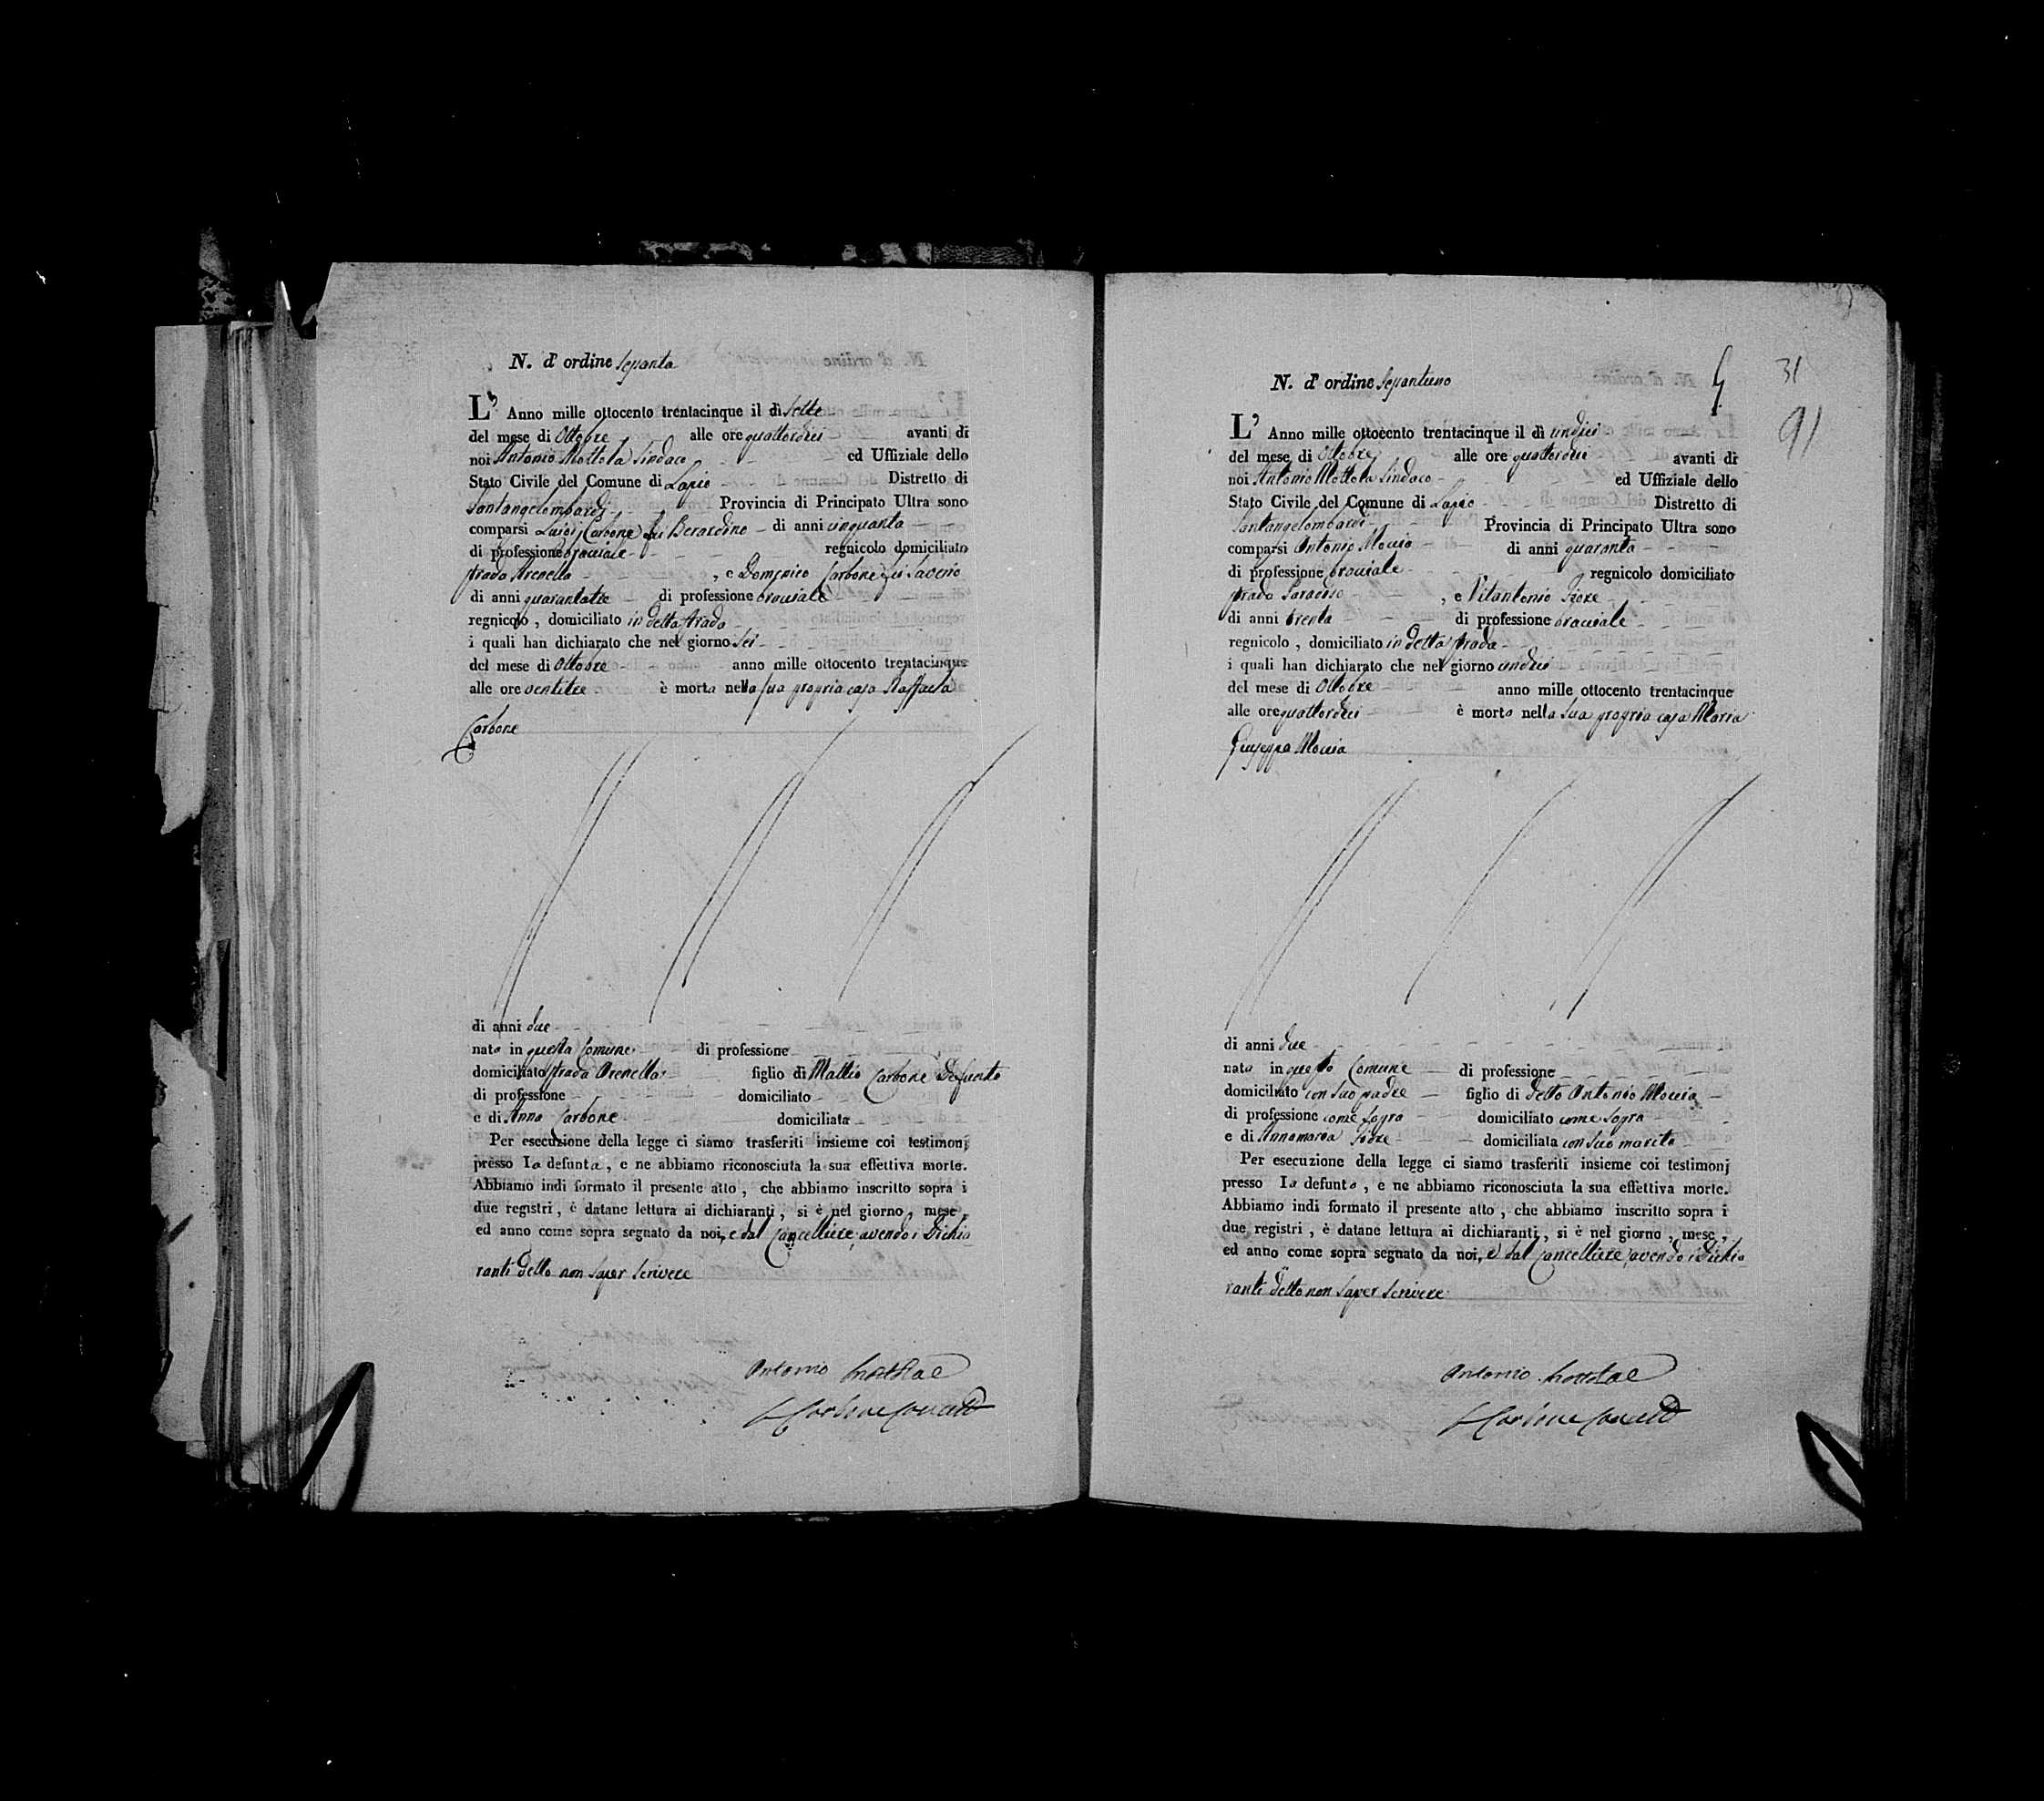 N. d' ordine Sessanta
L' Anno mille ottocento trentacinque il dì Sette
del mese di Ottobre alle ore quattordici avanti di
noi Antonio Mottola Sindaco ed Uffiziale dello
Stato Civile del Comune di Lapio Distretto di
Santangelombardi Provincia di Principato Ultra sono
comparsi Luigi Carbone fu Berardino di anni cinquanta
di professione bracciale regnicolo domiciliato
strada Arenella , e Domenico Carbone fu Saverio
di anni quarantatre di professione bracciale
regnicolo , domiciliato in detta strada
i quali han dichiarato che nel giorno Sei
del mese di Ottobre anno mille ottocento trentacinque
alle ore ventitre è morta nella sua propria casa Raffaela
Carbone
di anni due
nata in questa Comune di professione
domiciliato strada Arenella figlio di Mattio Carbone Defunto
di professione domiciliato
e di Anna Carbone domiciliata
Per esecuzione della legge ci siamo trasferiti insieme coi testimonj
presso la defunta , e ne abbiamo riconosciuta la sua effettiva morte.
Abbiamo indi formato il presente atto , che abbiamo inscritto sopra i
due registri , è datane lettura ai dichiaranti , si è nel giorno , mese ,
ed anno come sopra segnato da noi, e dal Cancelliere avendo i Dichia
ranti detto non saper scrivere
Antonio Mottola
Carbone
31
91
N. d' ordine Sessantuno
L' Anno mille ottocento trentacinque il dì undici
del mese di Ottobre alle ore quattordici avanti di
noi Antonio Mottola Sindaco ed Uffiziale dello
Stato Civile del Comune di Lapio Distretto di
Santangelombardi Provincia di Principato Ultra sono
comparsi Antonio Moccia di anni quaranta
di professione bracciale regnicolo domiciliato
strada Paradiso , e Vitantonio Fiore
di anni trenta di professione bracciale
regnicolo , domiciliato in detta strada
i quali han dichiarato che nel giorno undici
del mese di Ottobre anno mille ottocento trentacinque
alle ore quattordici è morta nella sua propria casa Maria
Giuseppa Moccia
di anni due
nata in questo Comune di professione
domiciliato con suo padre figlio di detto Antonio Moccia
di professione come sopra domiciliato come sopra
e di Annamaria Fiore domiciliata con suo marito
Per esecuzione della legge ci siamo trasferiti insieme coi testimonj
presso la defunta , e ne abbiamo riconosciuta la sua effettiva morte.
Abbiamo indi formato il presente atto , che abbiamo inscritto sopra i
due registri , è datane lettura ai dichiaranti , si è nel giorno , mese ,
ed anno come sopra segnato da noi, e dal Cancelliere avendo i Dichia
ranti detto non saper scrivere
Antonio Mottola
Carbone